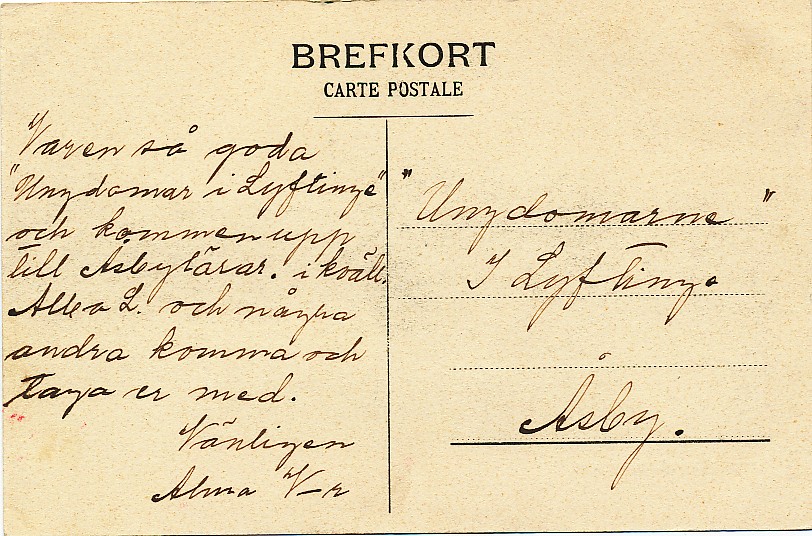 BREFKORT
CARTE POSTALE
Varen så goda
"Ungdomar i Lyftinge"
och kommen upp
till Åsbylärar. i kväll.
Alla L. och några
andra komma och
taga er med.
Vänligen
Alma V-r
"Ungdomarne"
I Lyftinge
Åsby.